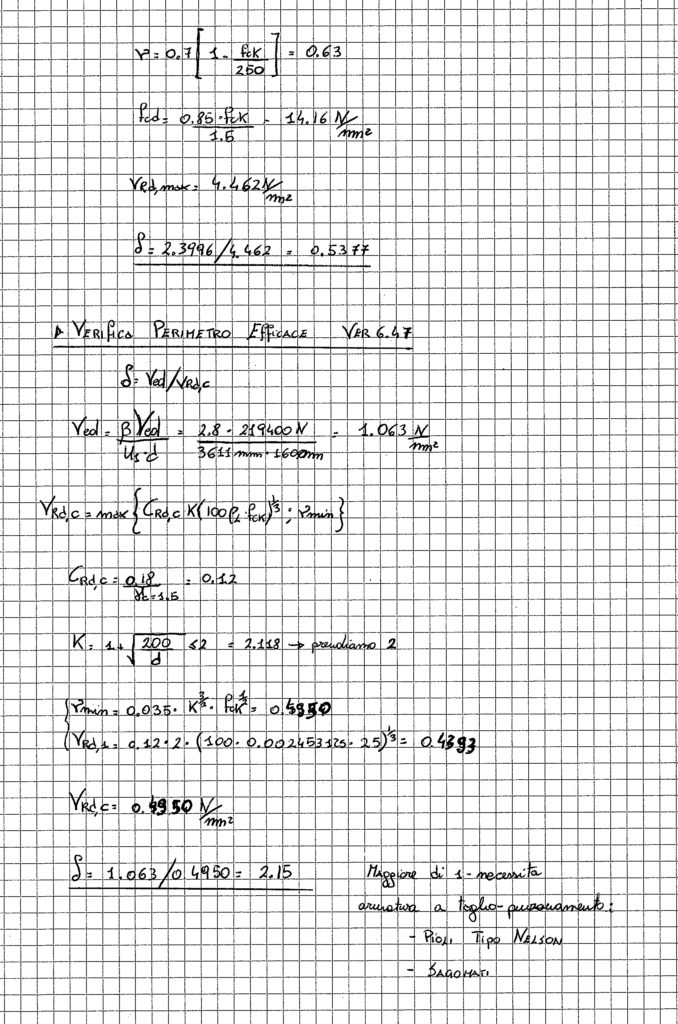 ν = 0.7 [ 1 - fcK / 250 ] = 0.63
fcd = 0.85 · fcK / 1.5 = 14.16 N/mm²
VRd,max = 4.462 N/mm²
δ = 2.3996/4.462 = 0.5377
▷ VERIFICA PERIMETRO EFFICACE VER 6.47
δ = Ved/VRd,c
Ved = β Ved / U1·d = 2.8 · 219400 N / 3611 mm · 160 mm = 1.063 N/mm²
VRd,c = max { CRd,c K (100 ρL fcK)^1/3 ; νmin }
CRd,c = 0.18 / γc=1.5 = 0.12
K = 1 + √(200 / d) ≤ 2 = 2.118 → prendiamo 2
νmin = 0.035 · K^3/2 · fcK^1/2 = 0.4950
VRd,1 = 0.12 · 2 · (100 · 0.002453125 · 25)^1/3 = 0.4393
VRd,c = 0.4950 N/mm²
δ = 1.063/0.4950 = 2.15
Maggiore di 1 - necessita
armatura a taglio-punzonamento:
- PIOLI TIPO NELSON
- SAGOMATI